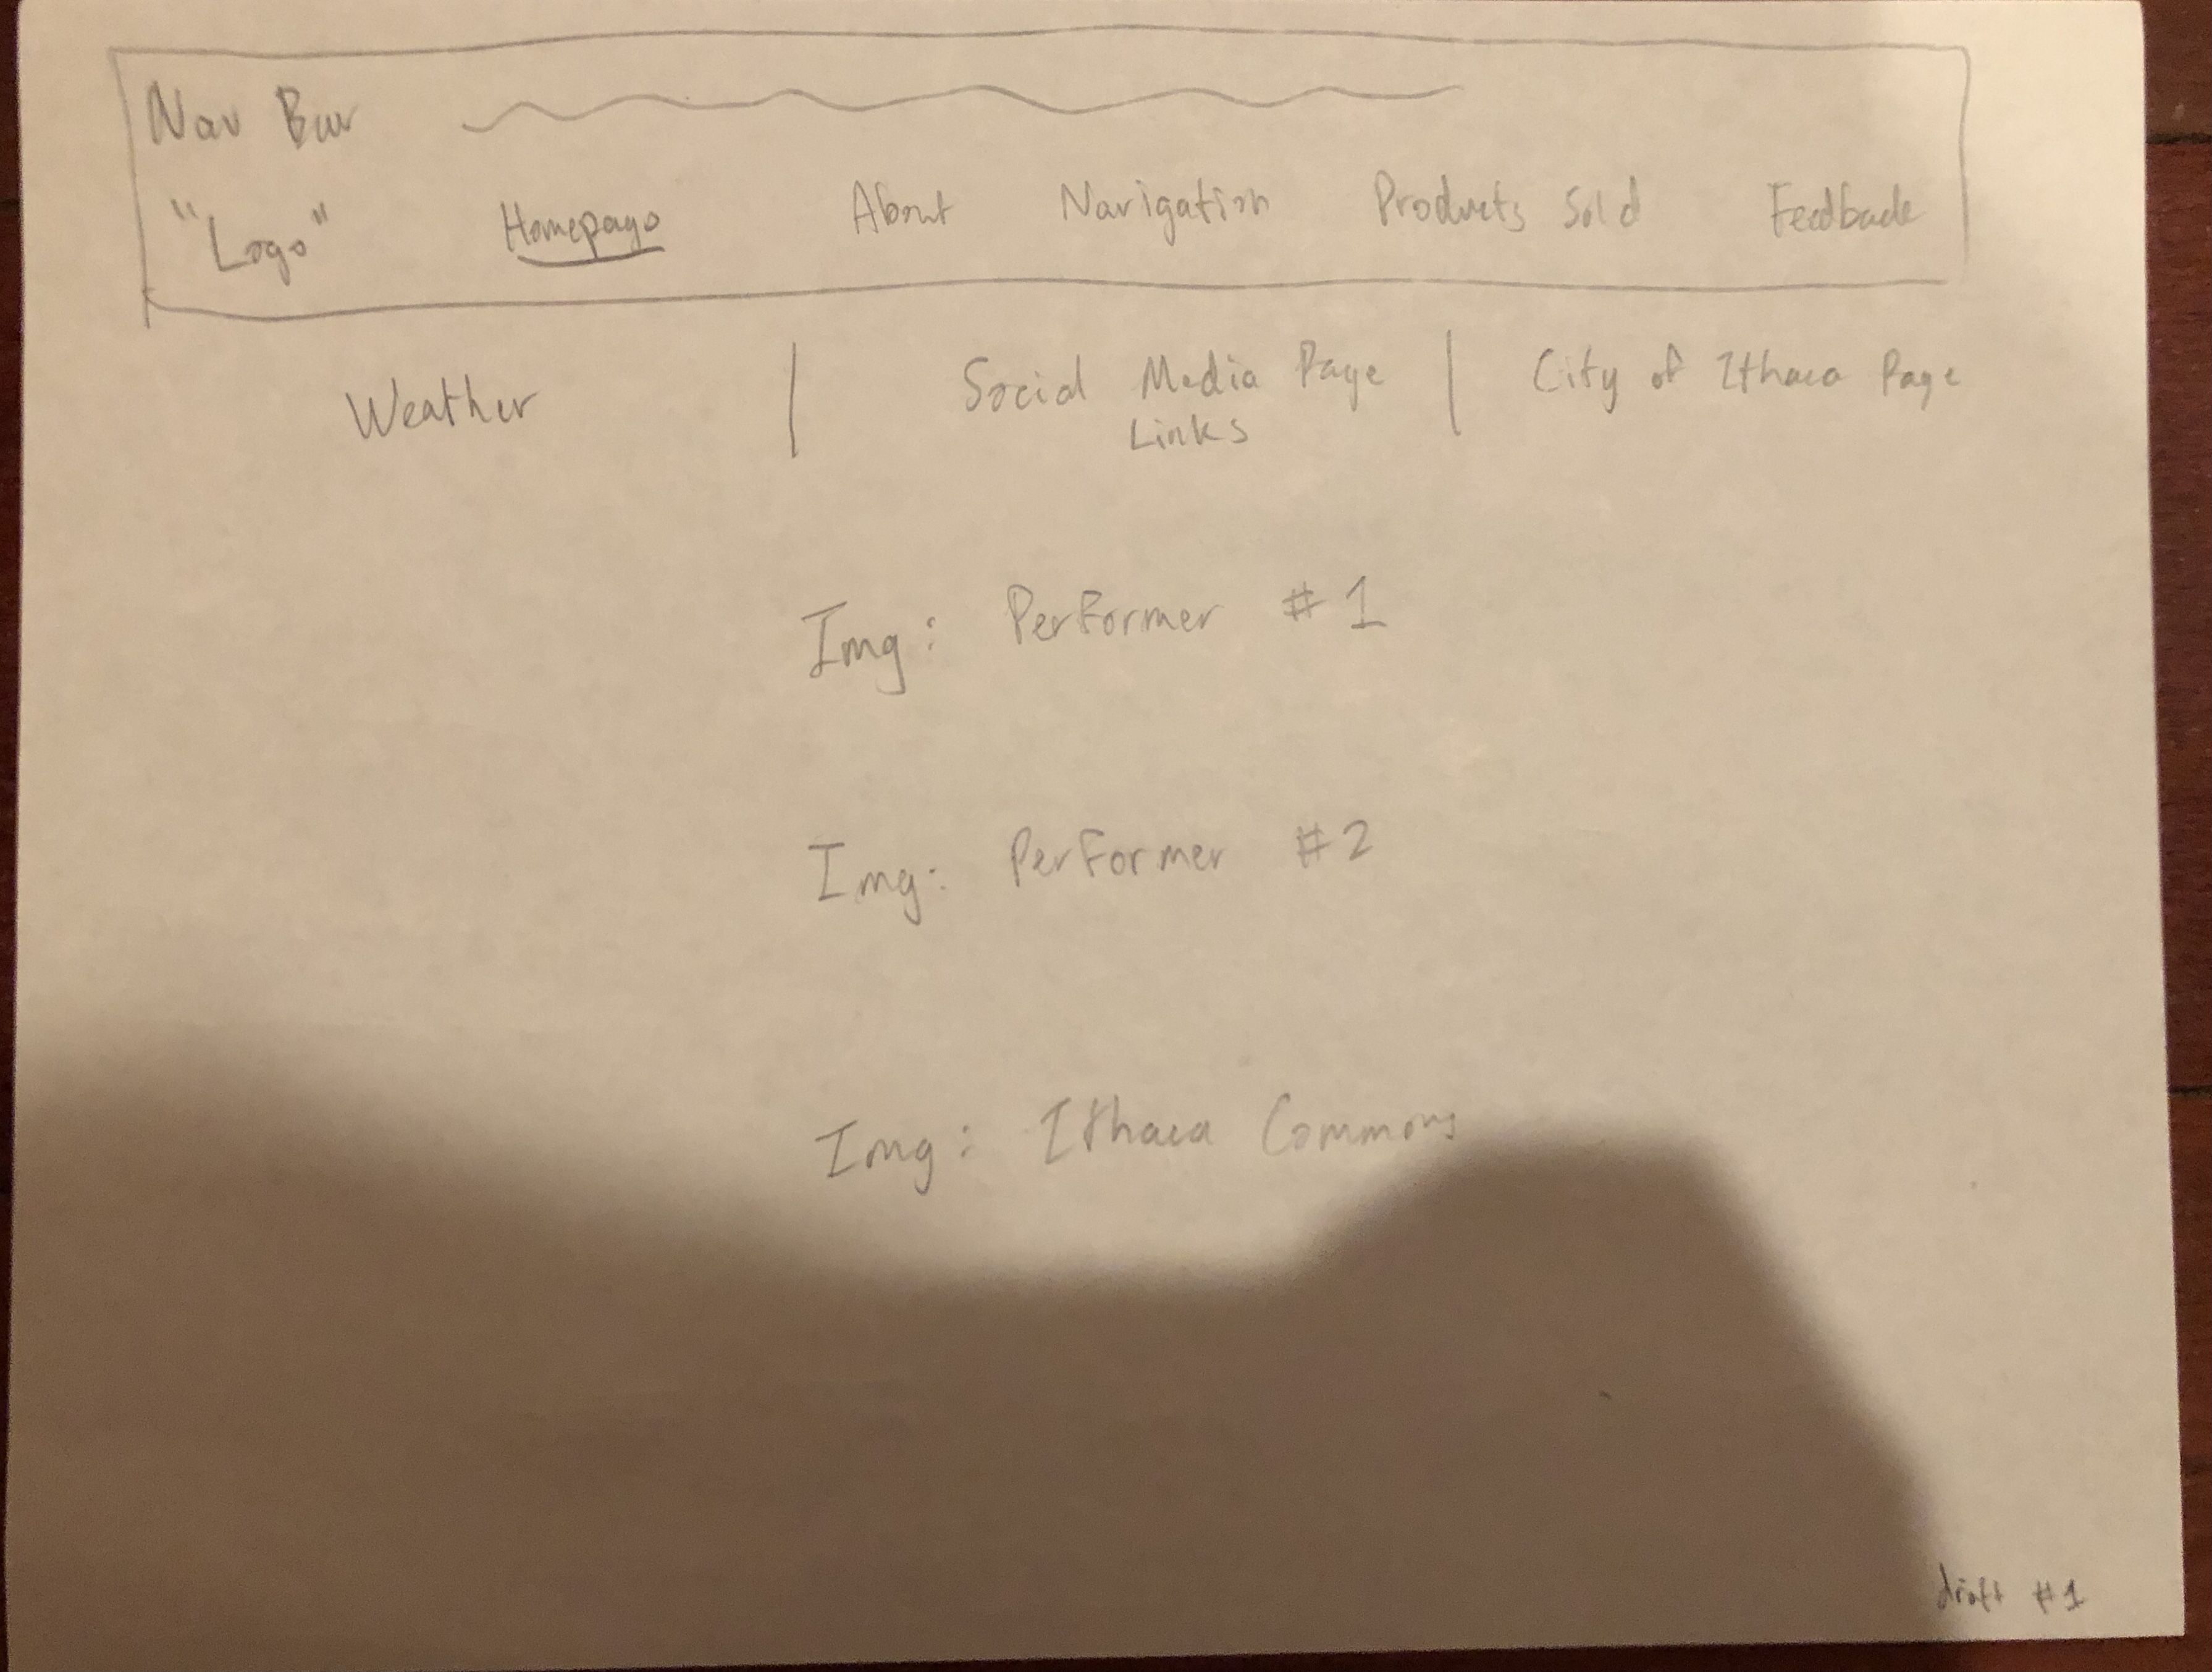 Nav Bar
"Logo" Homepage About Navigation Products Sold Feedback
Weather | Social Media Page Links | City of Ithaca Page
Img: Performer #1
Img: Performer #2
Img: Ithaca Commons
draft #1